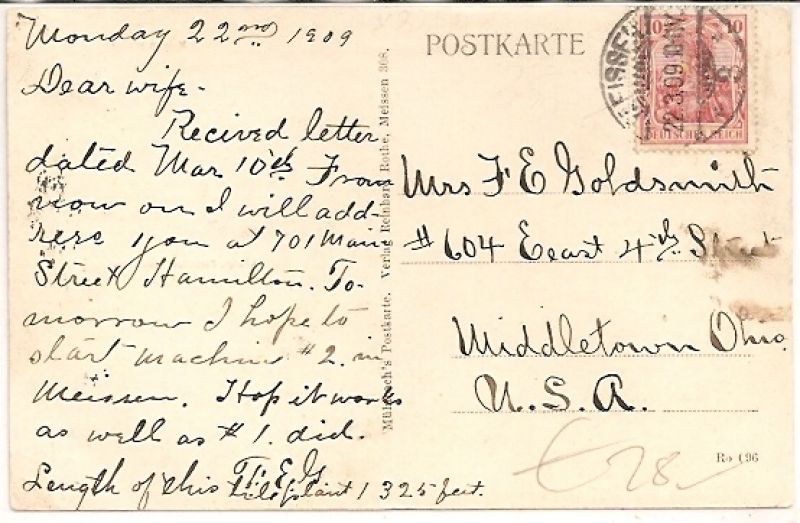 Monday 22nd 1909
Dear wife-
Recived letter
dated Mar 10th From
now on I will add-
ress you at 701 Main
Street Hamilton. To-
morrow I hope to
start machine #2. in
Meissen. Hop it works
as well as #1. did.
F. E. G.
Length of this plant 1325 feet.
Mühlbach's Postkarte. Verlag Reinhard Rothe, Meissen 308.
POSTKARTE
10 10
DEUTSCHES REICH
MEISSEN
22.3.09.
Mrs F E Goldsmith
#604 Eeast 4th Street
Middletown Ohio.
U. S. A.
Ro 696